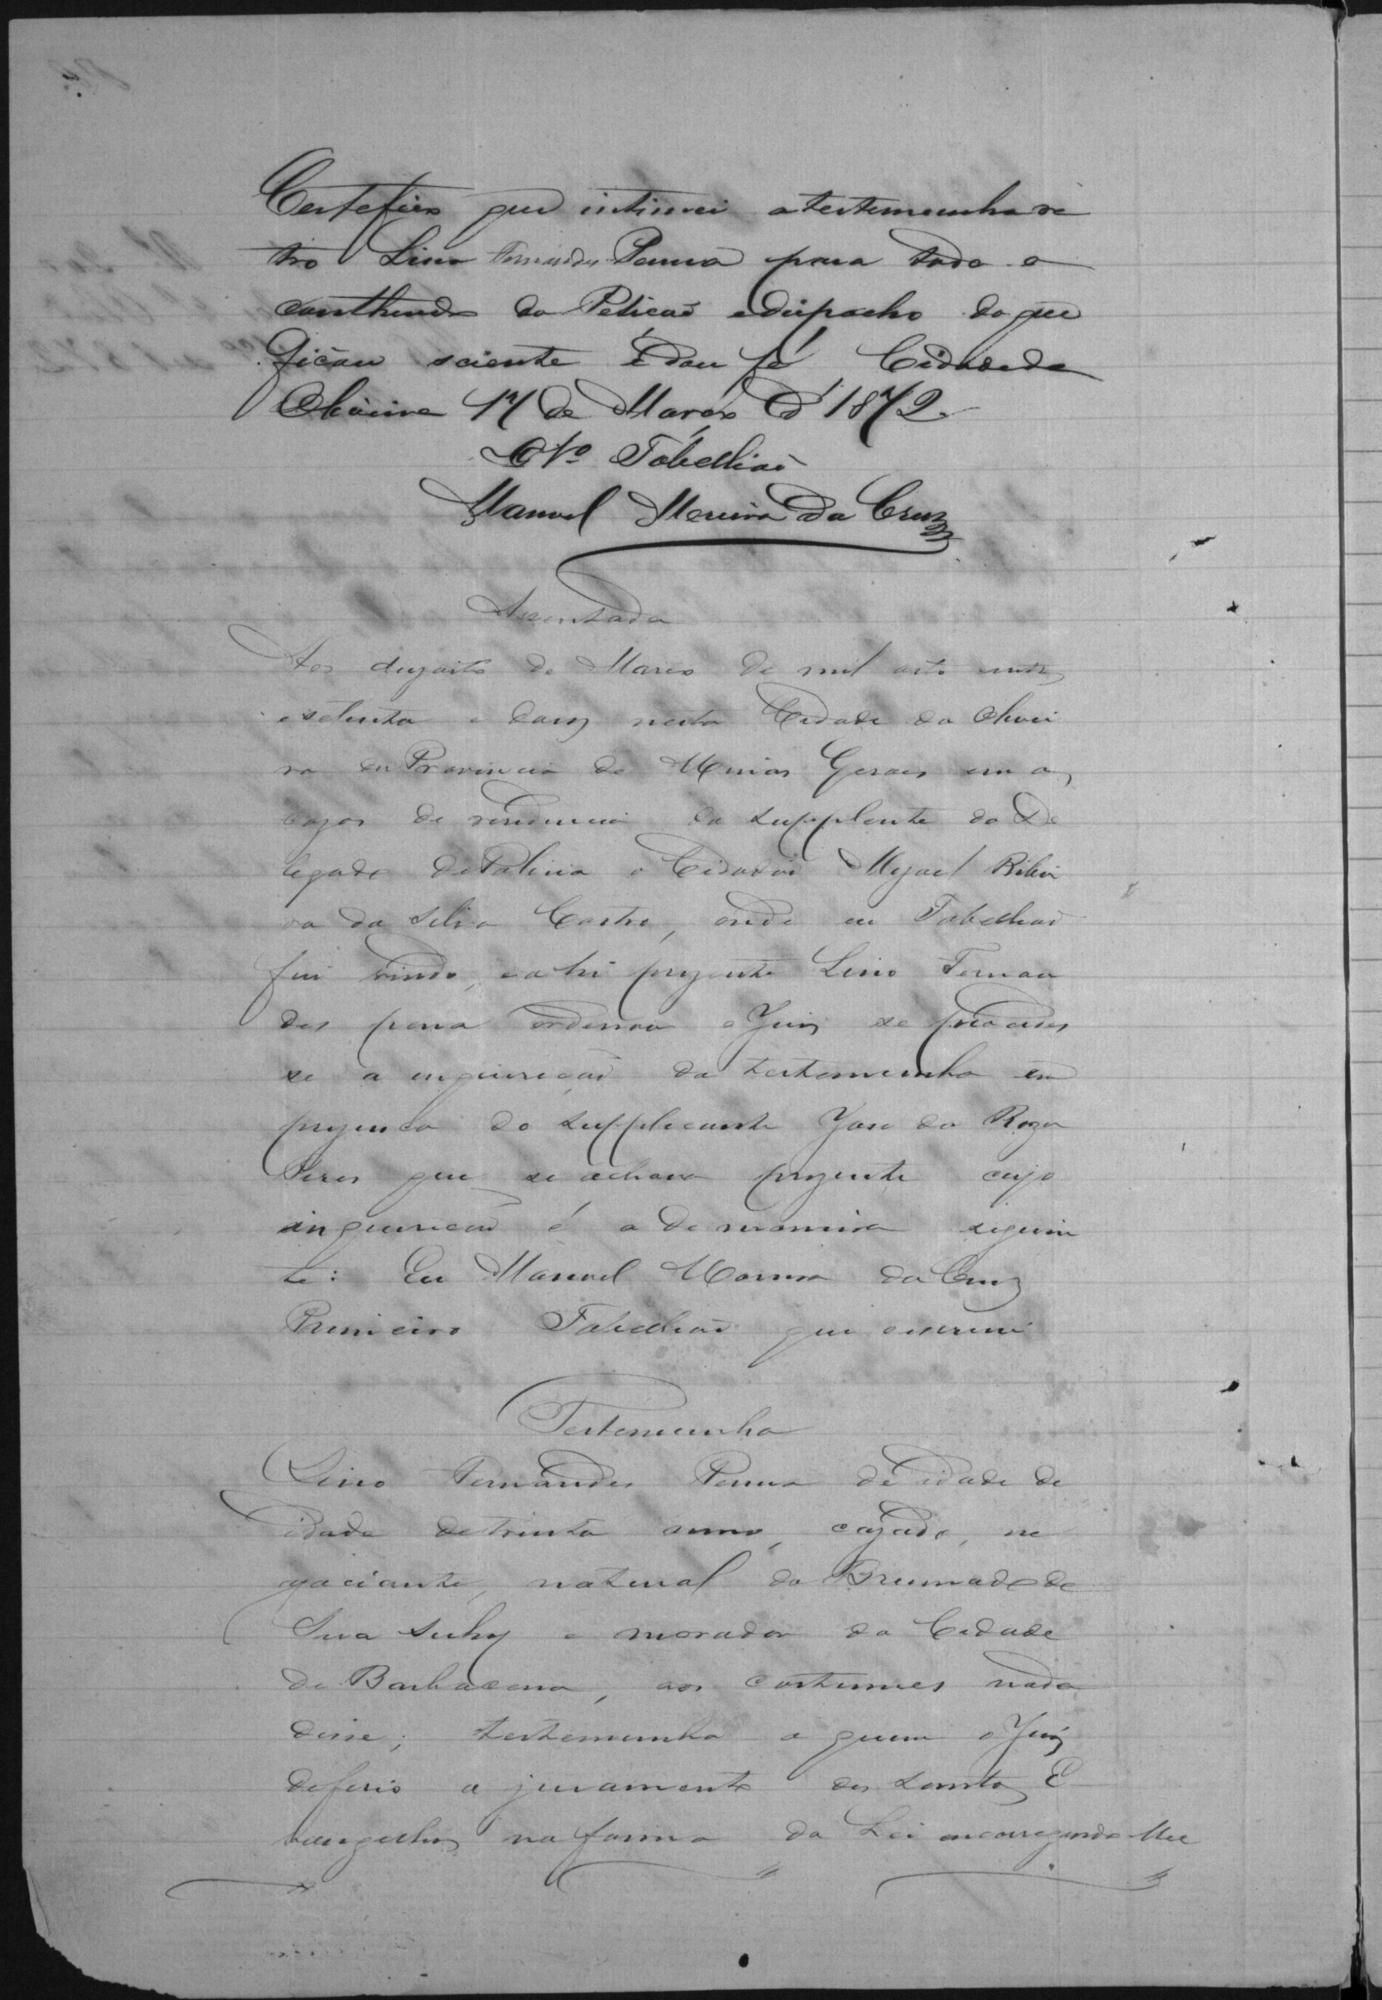 Certefico que intimei atestemunha re
tro Lino Fernandes Penna para todo o
conthendo da Peticaõ edispacho do que
ficou sciente e dou fé Cidade da
Oliveira 17 de Março de 1872.
O 1º Tabelliaõ
Manoel Moreira da Cruz
Assentada
Aos dezoito de Março de mil oito centos
esetenta e dous nesta Cidade da Olivei
ra da Provincia de Minas Geraes em a,
cazas de rezidencia do supplente do De
legado dePolicia o Cidadaõ Migael Ribei
ro da Silva Castro, onde eu Tabelliaõ
fui vindo, eahi prezente Lino Fernan
des penna ordenou oJuiz se procedes
se a inquiriçaõ da testemunha em
prezenca do supplicante Joze da Roza
Peres que se achava prezente cuja
inquiricaõ é a de maneira seguin
te: Eu Manoel Moreira da Cruz
Primeiro Tabelliaõ que escrevi
Testemunha
Lino Fernandes Penna de idade de
idade detrinta annos, cazado, ne
gociante, natural do Brumado de
Suasuhy e morador da Cidade
de Barbacena, aos custumes nada
disse; testemunha a quem oJuiz
deferio o juramento dos Santos E
vangelhos na forma da Lei encarregando-lhe